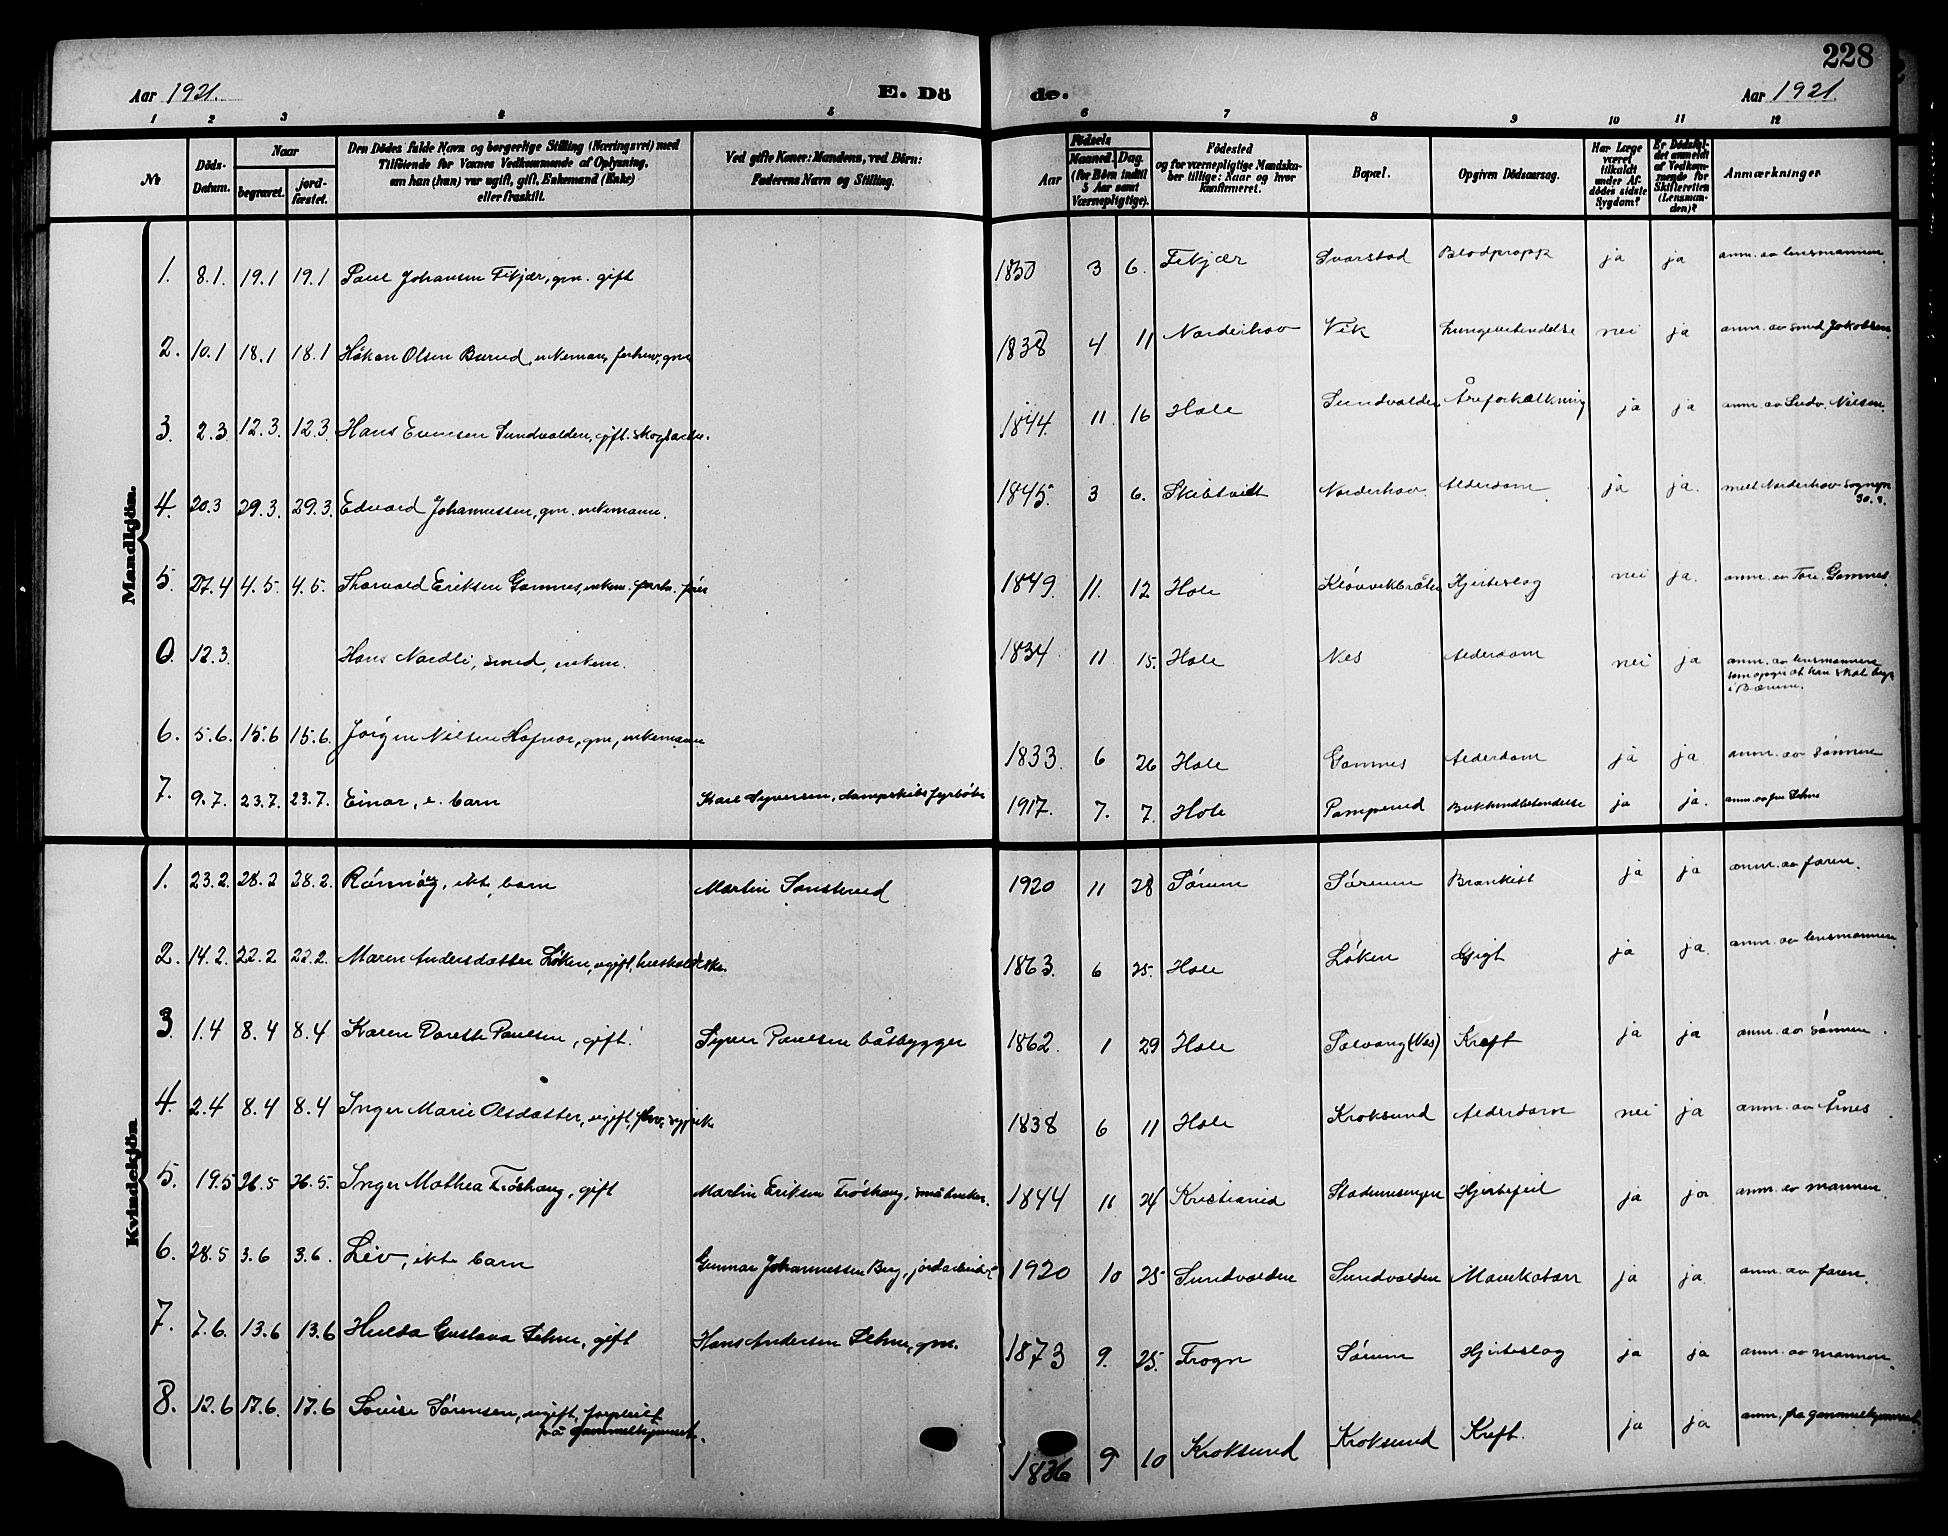 228
Aar 1921. E. Dö de. Aar 1921
1 2 3 4 5 6 7 8 9 10 11 12
№ Döds-Datum. Naar begravet. jord-fæstet. Den Dödes fulde Navn og borgerlige Stilling (Næringsvei) med Tilföiende for Voxnes Vedkommende af Oplysning, om han (hun) var ugift, gift, Enkemand (Enke) eller fraskilt. Ved gifte Koner: Mandens, ved Börn: Faderens Navn og Stilling. Födsels Aar Maaned. Dag. (for Börn indtil 5 Aar samt Værnepligtige). Födested og for værnepligtige Mandskaber tillige: Naar og hvor konfirmeret. Bopæl. Opgiven Dödsaarsag. Har Læge været tilkaldt under Afdödes sidste Sygdom? Er Dödsfaldet anmeldt af Vedkommende for Skifteretten (Lensmanden)? Anmærkninger
Mandkjön.
1. 8.1. 19.1 19.1 Paul Johansen Fekjær, gm. gift 1850 3 6. Fekjær Svarstad Blodpropp ja ja anm. av lensmannen.
2. 10.1 18.1 18.1 Håkon Olsen Burud, enkeman, forhenv. gm 1838 4 11 Norderhov Vik Lungebetendelse nei ja anm. av smed Jakobsen
3. 2.3 12.3. 12.3. Hans Evensen Sundvolden, gift. skogsarb. 1844. 11 16 Hole Sundvolden Åreforkalkning ja ja anm. av Ludv. Nilsen.
4. 20.3 29.3. 29.3. Edvard Johannessen, gm. enkemann. 1845. 3 6. Skibtvedt Norderhov Alderdom ja ja. melt Norderhov sognepr. 30.3.
5. 27.4 4.5. 4.5. Thorvald Eriksen Gomnes, enkem. 1849. 11. 12 Hole Kløvvikbråten Hjerteslag nei ja. anm. av Tore Gomnes.
0. 12.3. Hans Nordli, smed, enkem. 1834 11 15. Hole Nes Alderdom nei ja anm. av lensmannen som opgir at han skal begr. i Bærum.
6. 5.6. 15.6 15.6. Jørgen Nilsen Hafnor, gm, enkemann 1833. 6 26 Hole Gomnes Alderdom ja ja. anm. av sønnen
7. 9.7. 23.7. 23.7. Einar, e. barn Karl Syversen, dampskibsfyrbøter 1917. 7. 7. Hole Pamperud Bukhindbetendelse ja ja. anm. av fru Lehne
Kvindekjön
1. 23.2. 28.2 28.2. Rønnøug, ekte, barn Martin Sonsterud 1920 11 28 Sørum Sørum Bronkitt ja ja anm. av faren.
2. 14.2. 22.2 22.2. Maren Andersdatter Løken, ugift, husholderske. 1863. 6 25. Hole Løken Gigt ja ja. anm. av lensmannen.
3 1.4 8.4 8.4 Karen Dorethe Paulsen, gift. Syver Paulsen båtbygger 1862. 1 29 Hole Solvang (Nes) Kreft ja ja anm. av sønnen.
4. 2.4 8.4 8.4 Inger Marie Olsdatter, ugift, 1838 6 11 Hole Kroksund Alderdom nei ja anm. av Årnes
5. 19.5 26.5 26.5. Inger Mathea Frøshaug, gift Martin Eriksen Frøshaug, småbruker. 1844 11 24 Kristiania Stadumsengen Hjertefeil ja ja anm. av mannen.
6. 28.5 3.6 3.6. Liv, ekte barn Gunnar Johannessen Berg, jordarbeider 1920 10 25 Sundvolden Sundvolden Mavekatarr ja ja. anm. av faren.
7. 7.6. 13.6 13.6 Hulda Gustava Lehne, gift Hans Andersen Lehne, gm. 1873 9. 25. Frogn Sørum Hjerteslag ja ja anm. av mannen.
8. 12.6 17.6. 17.6 Lovise Sørensen, ugift, forpleiet på gammelhjemmet. 1836 9 10 Kroksund Kroksund Kreft. ja ja anm. fra gammelhjemmet.